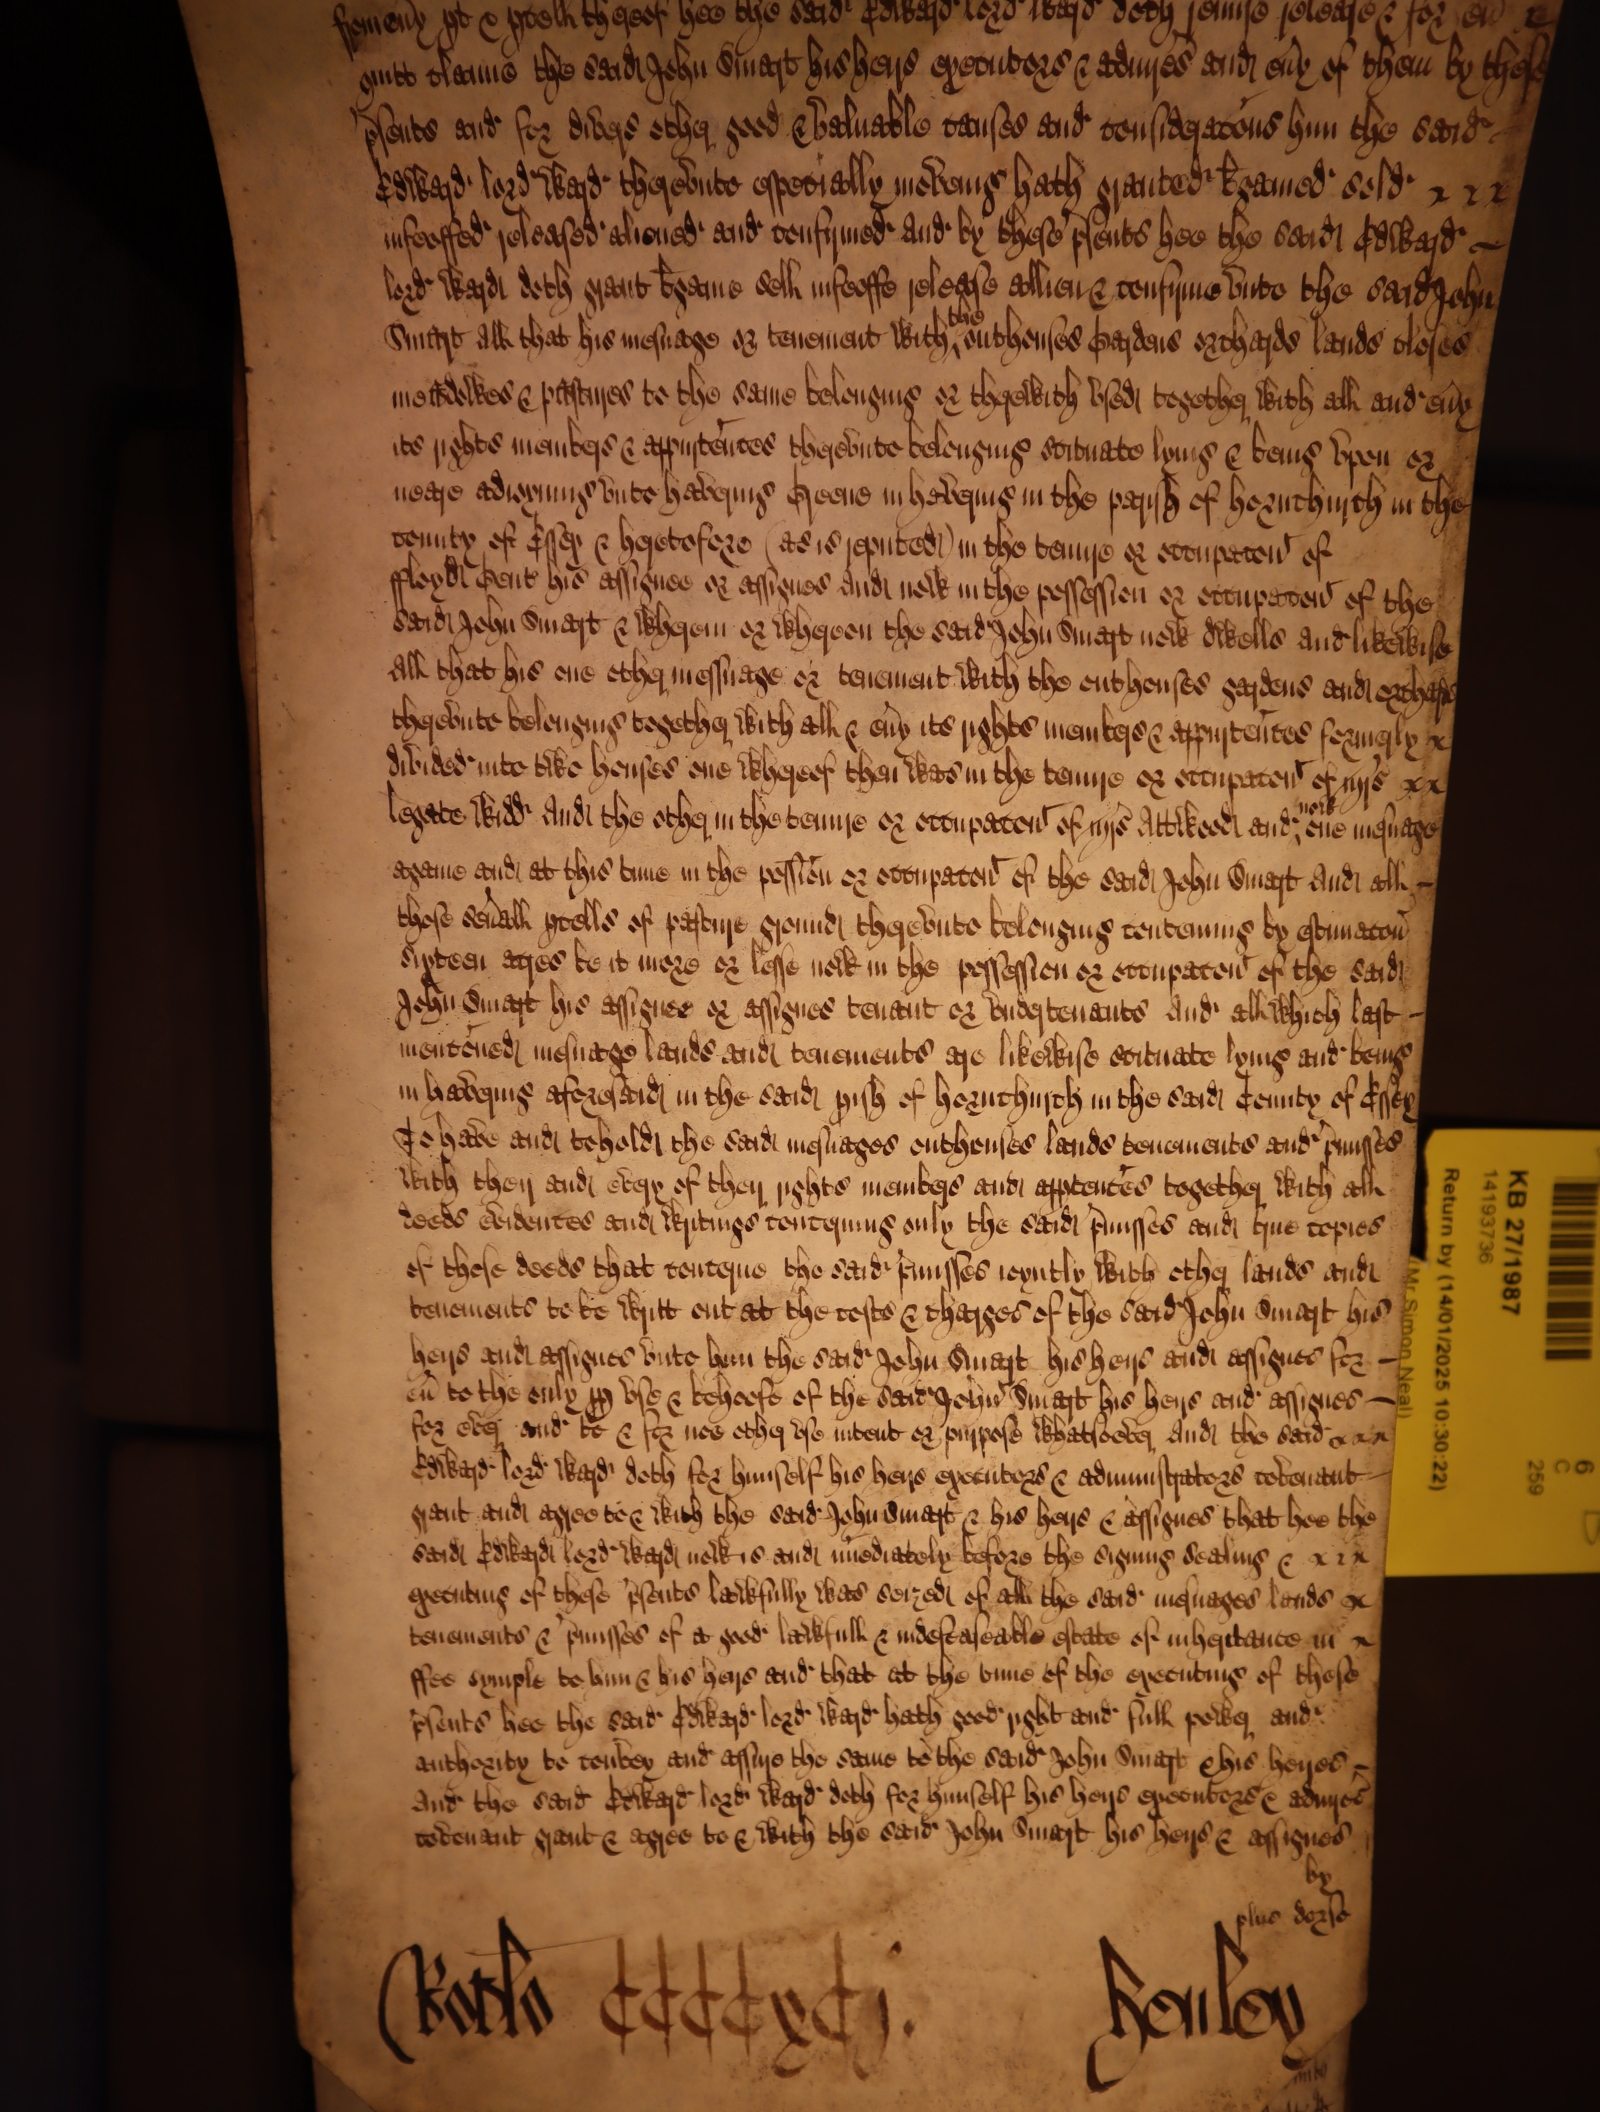 from eny pt & pcell thereof hee the said Edward Lord Ward doth remise release & for eu x
quitt clayme the said John Smart his heirs executors & admrs and eny of them by these
psents and for divers other good & valuable causes and consideracons him the said
Edward lord Ward thereunto especially moveing hath granted bgained sold x x x
infeoffed released aliened and confirmed And by these psents hee the said Edward
lord Ward doth grant bgaine sell infeoffe release allien & confirme unto the said John
Smart All that his mesuage or tenement with the outhouses Gardens orchards lands closes
meadowes & pastures to the same belonging or therewith used together with all and eny
its rights members & appurtences thereunto belonging scituate lying & being upon or
neare adioyning unto havering Greene in havering in the parish of hornchurch in the
County of Essex & heretofore (as is reputed) in the tenure or occupacon of
ffloyd Gent his assignee or assignes And now in the possession or occupacon of the
said John Smart & wherein or whereon the said John Smart now dwells And likewise
All that his one other messuage or tenement with the outhouses gardens and orchards
thereunto belonging together with all & eny its rights members & appurtences formerly x
divided into two houses one whereof then was in the tenure or occupacon of mrs x x
legate widd And the other in the tenure or occupacon of mrs Attwood and now one mesuage
againe and at this time in the possion or occupacon of the said John Smart And all
those seuall pcells of pasture ground thereunto belonging conteining by estimacon
sixteen acres be it more or lesse now in the possession or occupacon of the said
John Smart his assignee or assignes tenant or undertenants And all which last
mentoned mesuage lands and tenements are likewise scituate lying and being
in havering aforesaid in the said pish of hornchurch in the said County of Essex
To have and to hold the said mesuages outhouses lands tenements and pmisses
with their and every of their rights members and apptences together with all
deeds evidences and writings concerning only the said pmisses and true copies
of those deeds that concerne the said pmisses ioyntly with other lands and
tenements to be writt out at the costs & charges of the said John Smart his
heirs and assignes unto him the said John Smart his heirs and assignes for
eu to the only pp use & behoofe of the said John Smart his heirs and assignes
for ever and to & for noe other use intent or purpose whatsoever And the said x x x
Edward lord Ward doth for himself his heirs executors & administrators covenant
grant and agree to & with the said John Smart & his heirs & assignes that hee the
said Edward lord Ward now is and imediately before the signing sealing & x x x
executing of these psents lawfully was seized of all the said mesuages lands x
tenements & pmisses of a good lawfull & indefeaseable estate of inheritance in x
ffee symple to him & his heirs and that at the time of the executing of these
psents hee the said Edward lord Ward hath good right and full power and
authority to convey and assure the same to the said John Smart & his heires
And the said Edward lord Ward doth for himself his heirs executors & admrs
covenant grant & agree to & with the said John Smart his heirs & assignes
by
plus dorso
Rotlo CCCCxCj.
Henley
KB 27/1987
14193736
Return by (14/01/2025 10:30:22)
(Mr Simon Neal)
6
C
259